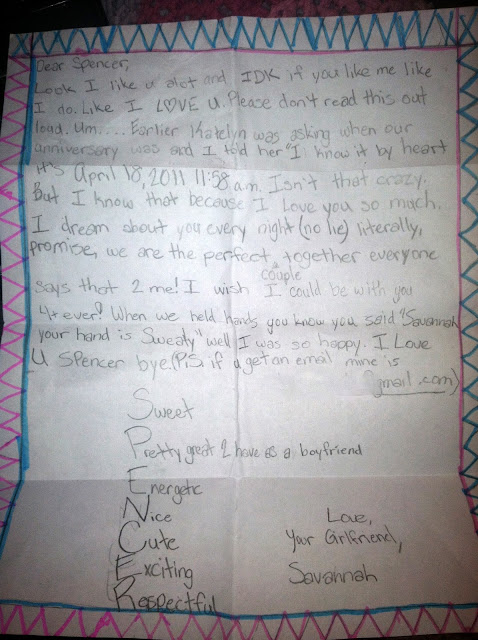 Dear Spencer,
Look I like u alot and IDK if you like me like
I do. Like I LOVE U. Please don't read this out
loud. Um..... Earlier Katelyn was asking when our
anniversary was and I told her "I know it by heart
it's April 18, 2011 11:58 a.m. Isn't that crazy.
But I know that because I love you so much.
I dream about you every night (no lie) literally,
promise, we are the perfect together everyone
couple
says that 2 me! I wish I could be with you
4+ ever! When we held hands you know you said "Savannah
your hand is Sweaty" well I was so happy. I Love
U Spencer bye. (P.S. if u get an email mine is
@gmail.com)
Sweet
Pretty great 2 have as a boyfriend
Energetic
Nice
Cute
Exciting
Respectful
Love,
Your Girlfriend,
Savannah